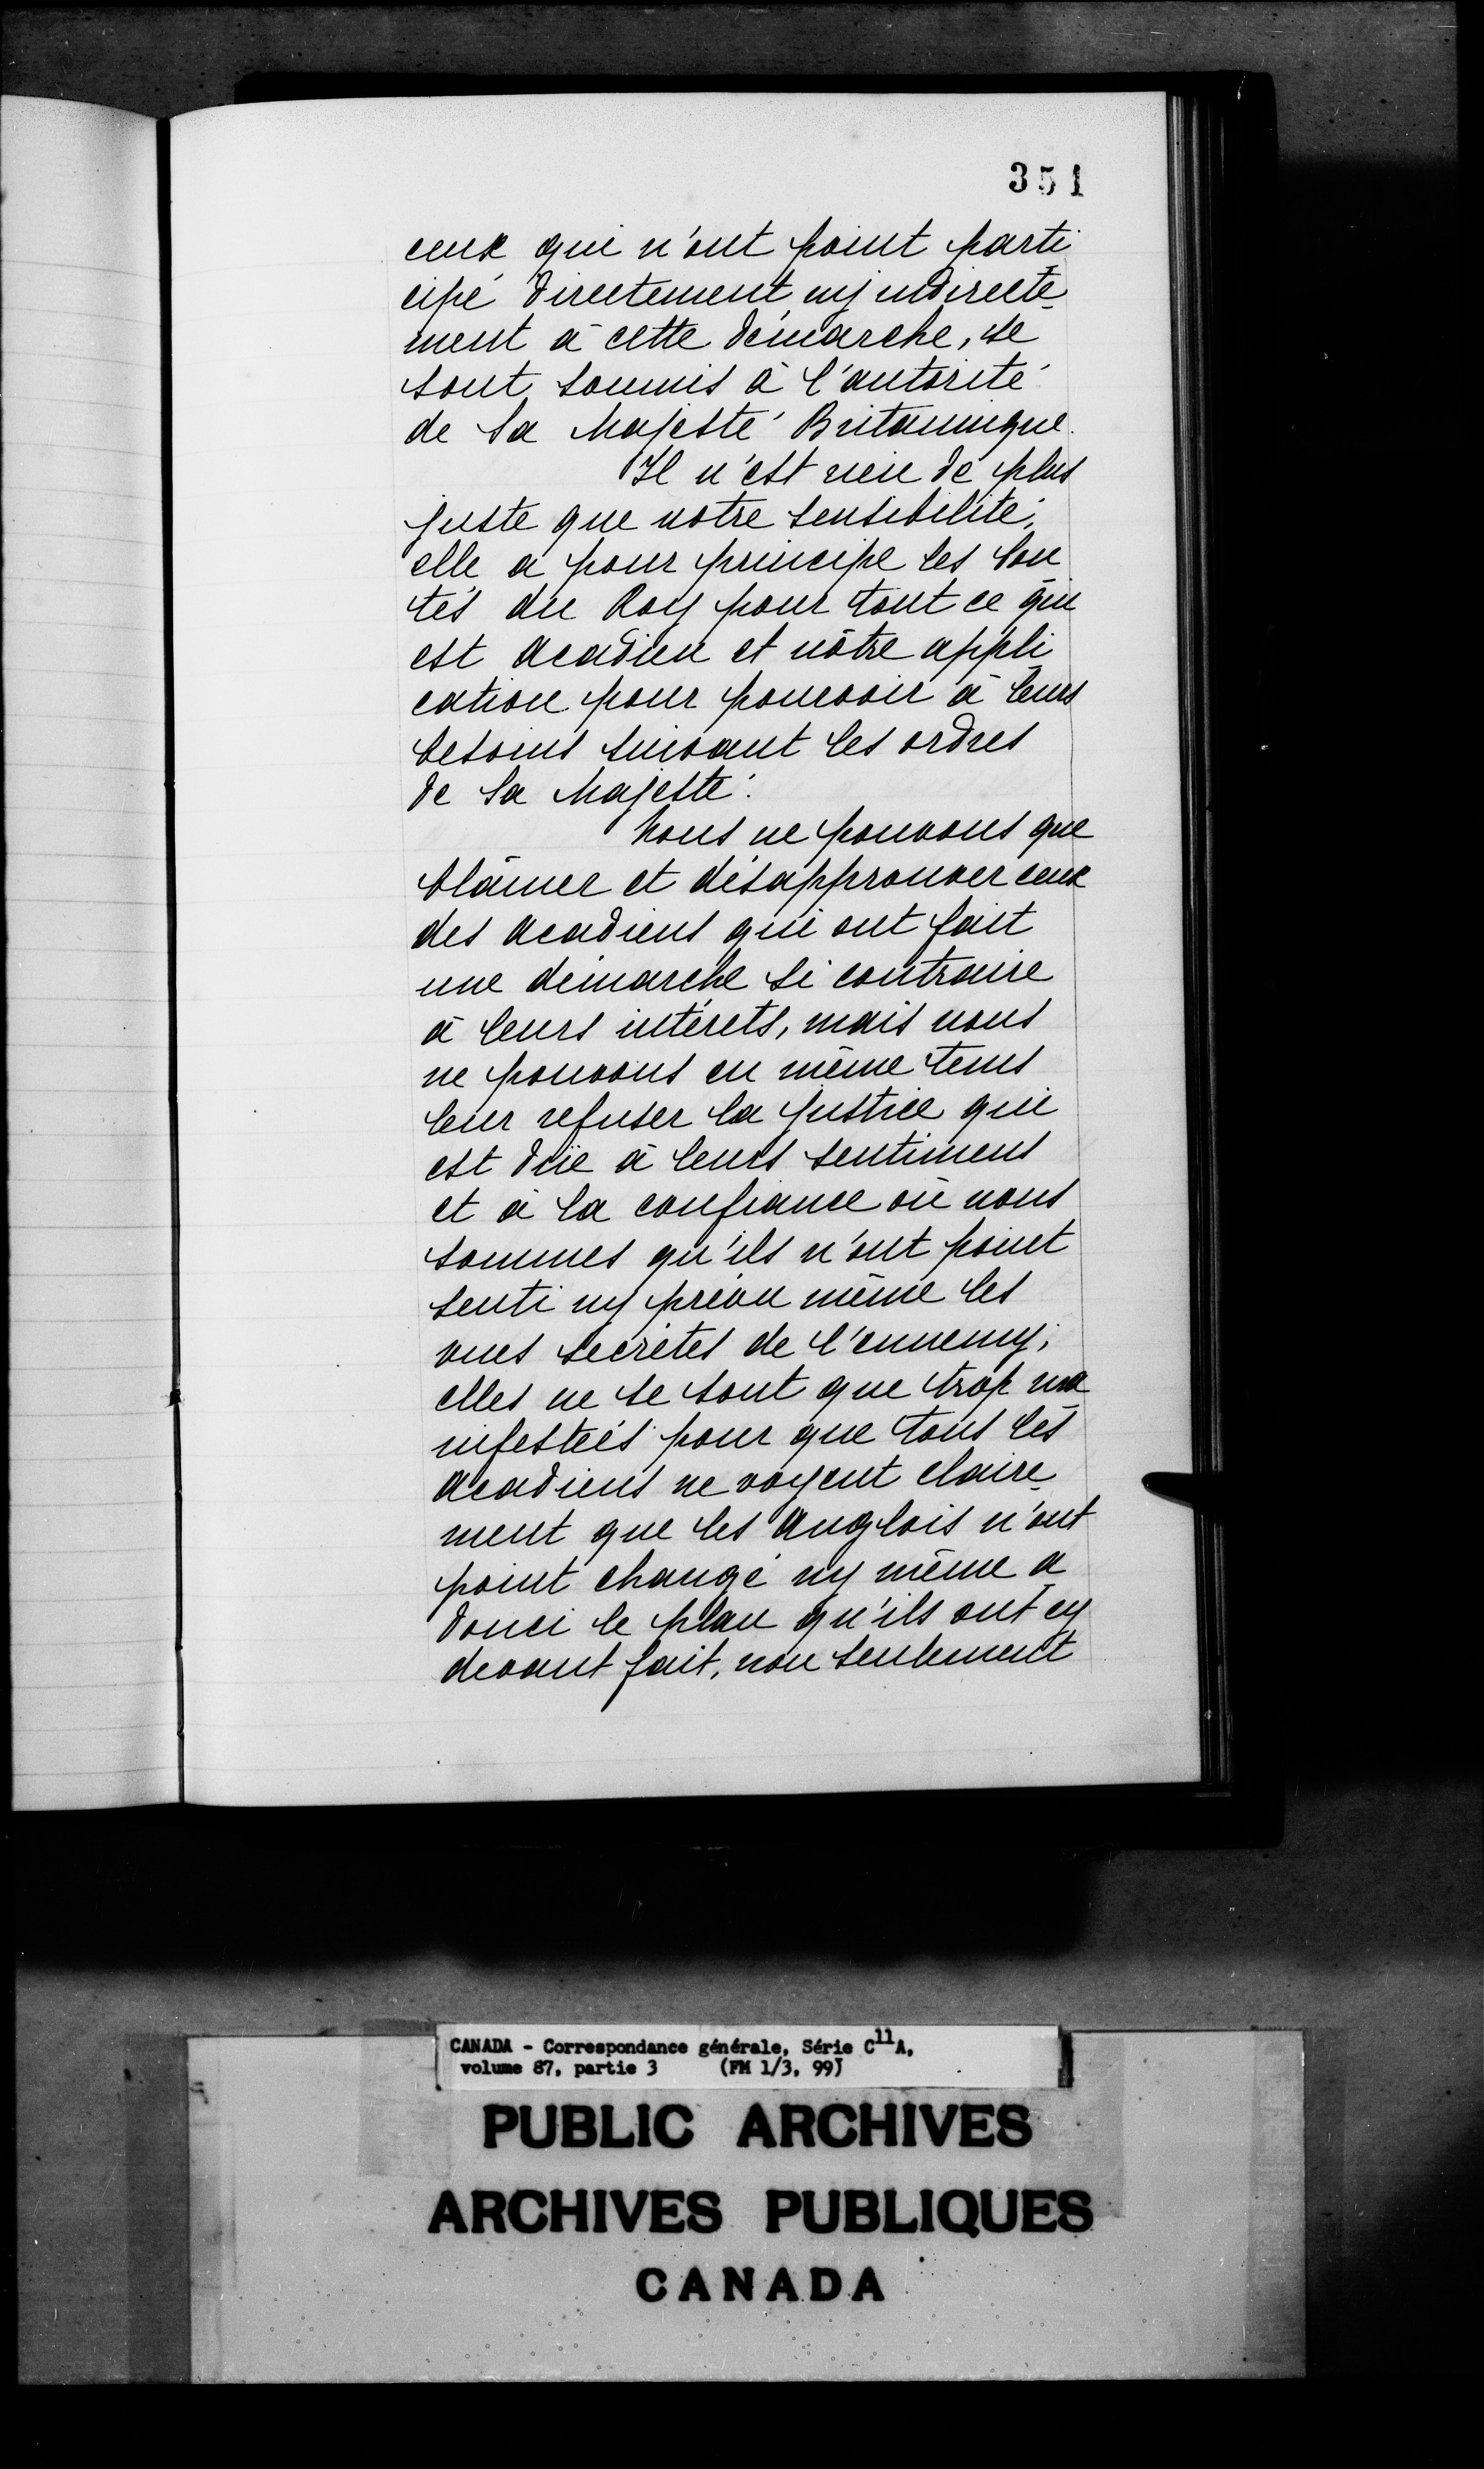 351
ceux qui n'ont point parti
cipé directement ny indirecte
ment à cette démarche, se
sont soumis à l'autorité
de Sa Majesté Britannique.
Il n'est rien de plus
juste que notre sensibilité;
elle a pour principe les bon
tés du Roy pour tout ce qui
est acadien et nôtre appli
cation pour pourvoir à leurs
besoins suivant les ordres
de Sa Majesté.
Nous ne pouvons que
blâmer et désapprouver ceux
des acadiens qui ont fait
une démarche si contraire
à leurs intérets, mais nous
ne pouvons en même tems
leur refuser la justice qui
est düe à leurs sentimens
et à la confiance où nous
sommes qu'ils n'ont point
senti ny prévu même les
vues secrètes de l'ennemy;
elles ne se sont que trop ma
nifestées pour que tous les
acadiens ne voyent claire
ment que les anglois n'ont
point changé ny même a
douci le plan qu'ils ont cy
devant fait, non seulement
CANADA - Correspondance générale, Série C11A,
volume 87, partie 3 (FM 1/3, 99)
PUBLIC ARCHIVES
ARCHIVES PUBLIQUES
CANADA